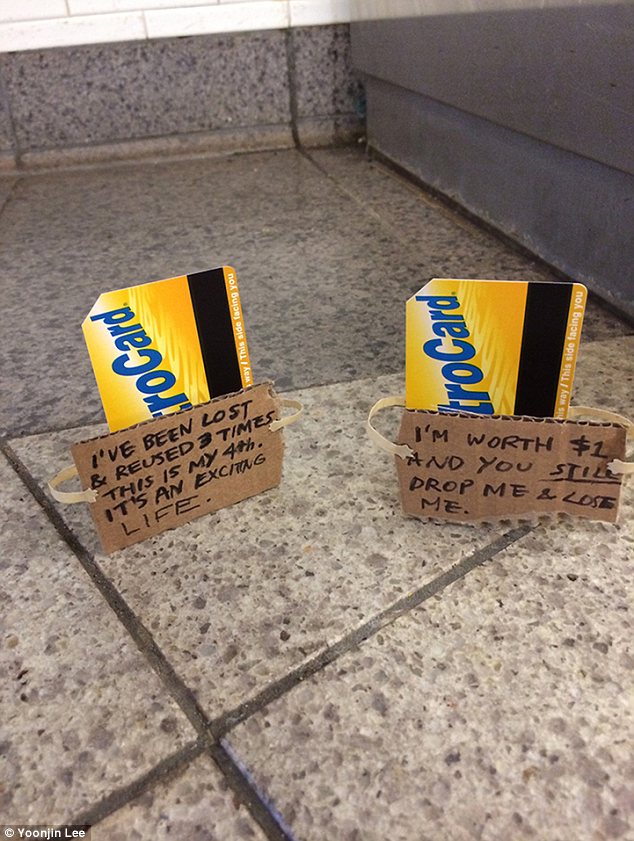 MetroCard.
way / This side facing you
I'VE BEEN LOST
& REUSED 3 TIMES.
THIS IS MY 4th.
IT'S AN EXCITING
LIFE.
troCard.
this way / This side facing you
I'M WORTH $1
AND YOU STILL
DROP ME & LOSE
ME.
© Yoonjin Lee